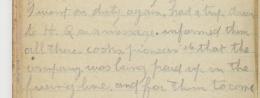 I went on duty again, had a trip down
to H.Q. as a message, informed them
all there cooks pioneers etc that the
company was being paid up in the
firing line, and for them to come